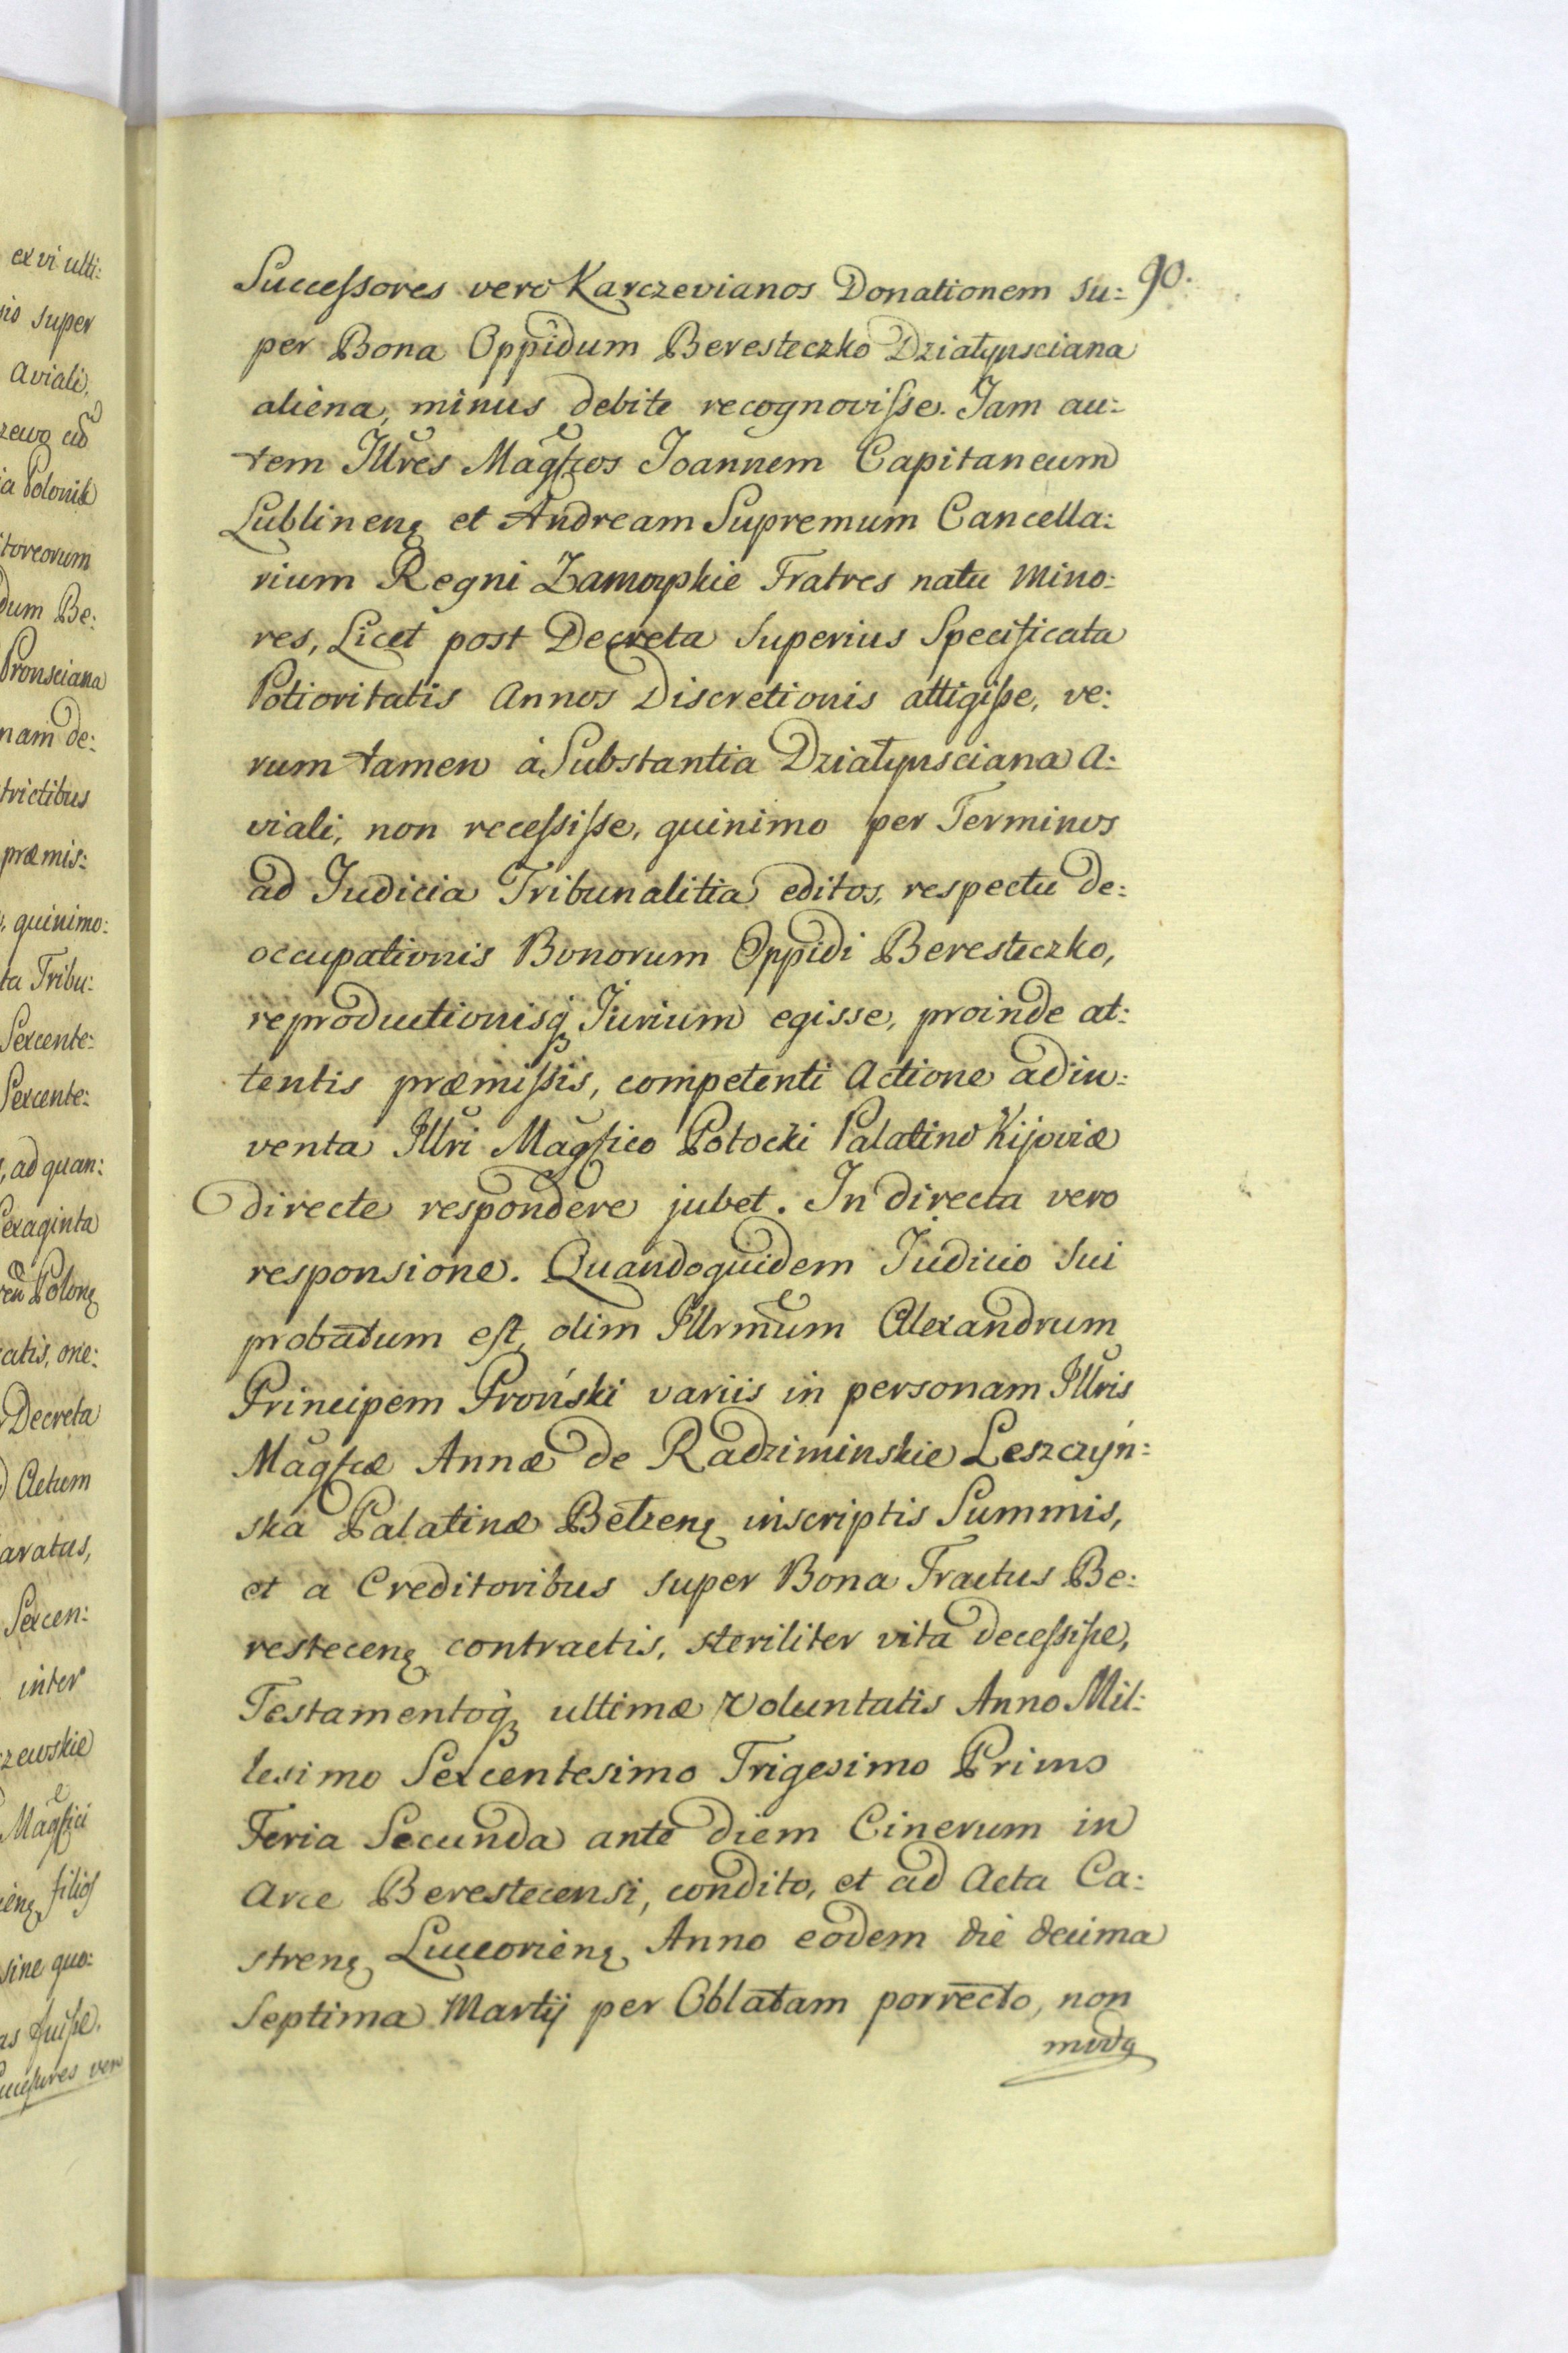 ex vi ulti:
sio super
aviali,
zewo ad
ia Polonik
itoreorum
dum Be:
Pronsciana
nam de:
trictibus
præmis:
, quinimo:
ta Tribu:
Sexcente:
Sexcente:
, ad quan:
Sexaginta
Polonę
catis, one:
Decreta
Actum
aratus,
Sexcen:
inter
zewskie
Magfici
filios
sine quo:
as fuiſse.
Succeſsores vero
Succeſsores vero Karczevianos Donationem su: 90.
per Bona Oppidum Beresteczko Działynsciana
aliena, minus debite recognoviſse. Jam au:
tem Illres Magfcos Joannem Capitaneum
Lublinenę et Andream Supremum Cancella:
rium Regni Zamoyskie Fratres natu mino:
res, Licet post Decreta Superius Specificata
Potioritatis Annos Discretionis attigiſse, ve:
rum tamen á Substantia Działynsciana A:
viali, non receſsiſse, quinimo per Terminos
ad Judicia Tribunalitia editos, respectu de:
occupationis Bonorum Oppidi Beresteczko,
reproductionisq Jurium egisse, proinde at:
tentis præmiſsis, competenti Actione adin:
venta Illri Magfico Potocki Palatino Kijoviæ
directe respondere jubet. In directa vero
responsione. Quandoquidem Judicio Sui
probatum est, olim Illrmum Alexandrum
Principem Proński variis in personam Illris
Magfcæ Annæ de Radziminskie Leszczyń:
ska Palatinæ Bełzenę inscriptis Summis,
et a Creditoribus super Bona Tractus Be:
restecenę contractis, steriliter vita deceſsiſse,
Testamentoq ultimæ Voluntatis Anno Mil:
lesimo Sexcentesimo Trigesimo Primo
Feria Secunda ante diem Cinerum in
Arce Berestecensi, condito, et ad Acta Ca:
strenę Lucceorienę Anno eodem die decima
Septima Martij per Oblatam porrecto, non
modo